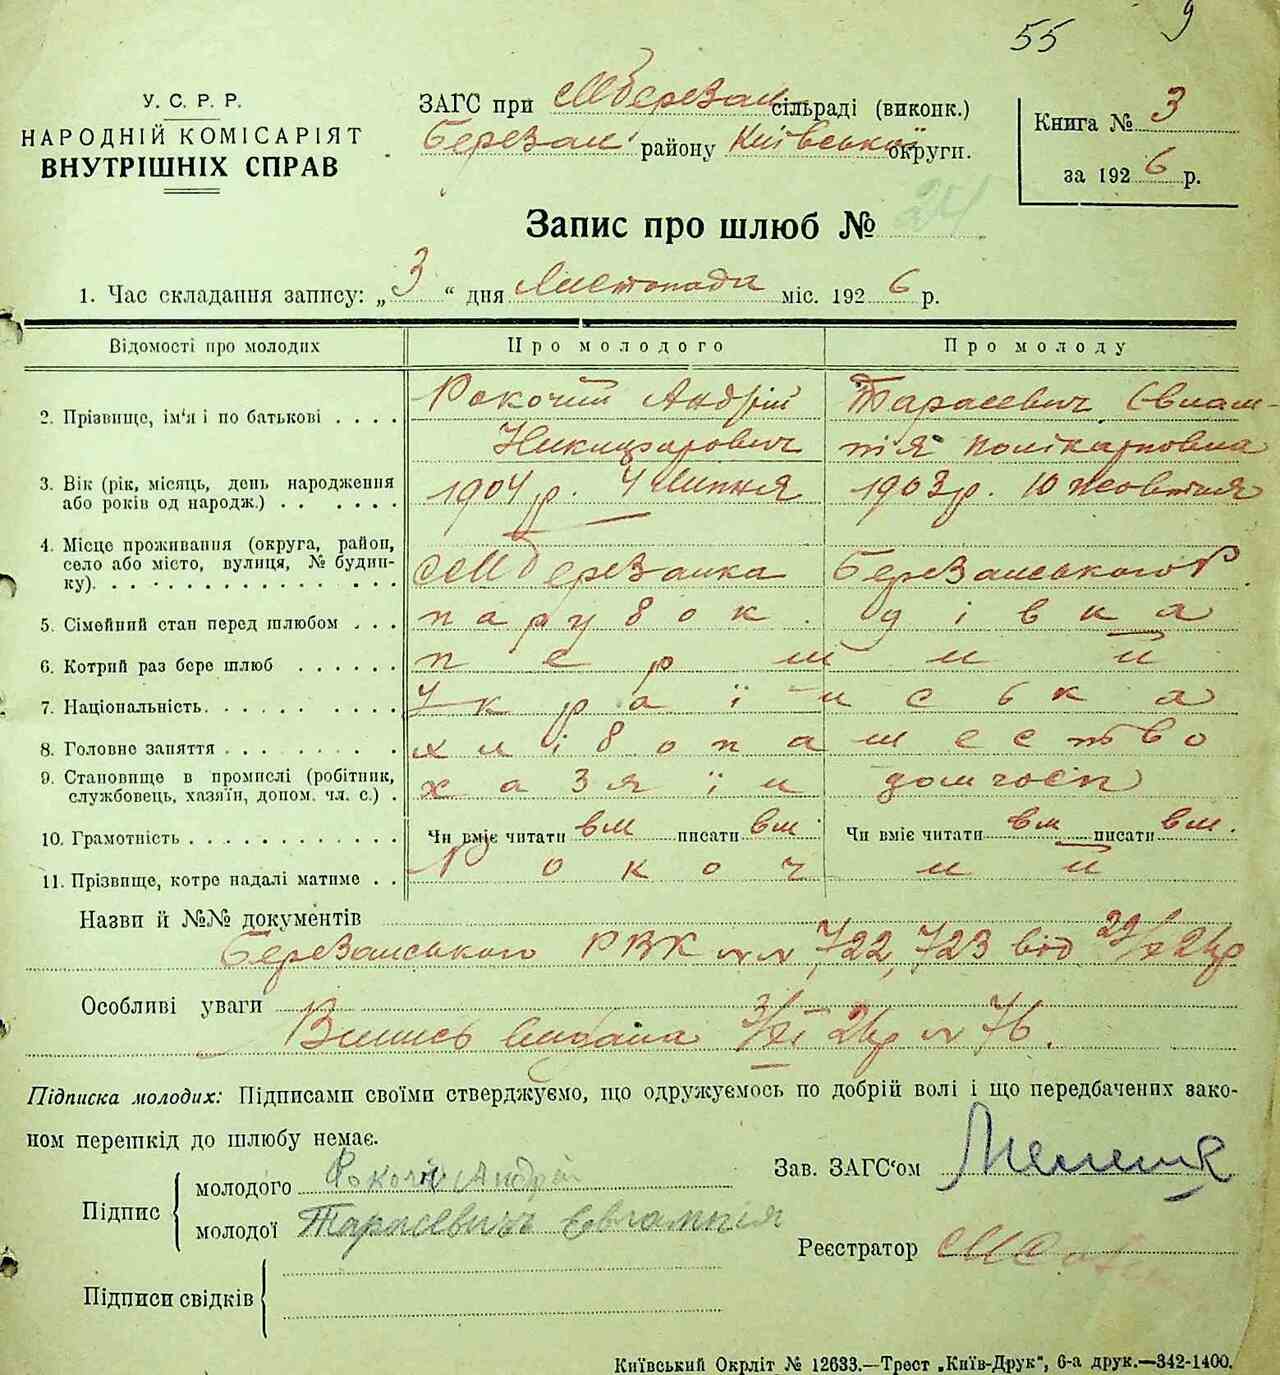 55 9
У. С. Р. Р.
НАРОДНІЙ КОМІСАРІЯТ
ВНУТРІШНІХ СПРАВ
ЗАГС при М Березан сільраді (виконк.)
Березан району Київської округи.
Книга № 3
за 1926 р.
Запис про шлюб № 24
1. Час складання запису: „3“ дня Листопада міс. 1926 р.
Відомості про молодих Про молодого Про молоду
2. Прізвище, ім'я і по батькові . . . . Рокочий Андрій Тарасевич Євлам-
Никифорович пія Полікарповна
3. Вік (рік, місяць, день народження
або років од народж.) . . . . . . 1904 р. 4 Липня 1903 р. 10 жовтня
4. Місце проживання (округа, район,
село або місто, вулиця, № будин-
ку). . . . . . . . . . . . . . . . . М Березанка Березанського Р
5. Сімейний стан перед шлюбом . . . парубок дівка
6. Котрий раз бере шлюб . . . . . . перший
7. Національність. . . . . . . . . . Українська
8. Головне заняття . . . . . . . . . хлібопашество
9. Становище в промислі (робітник,
службовець, хазяїн, допом. чл. с.) . хазяїн домгосп
10. Грамотність . . . . . . . . . . . Чи вміє читати вм писати вм Чи вміє читати вм писати вм.
11. Прізвище, котре надалі матиме . . Рокочий
Назви й №№ документів
Березанського РВК 722, 723 від 29/X 26р
Особливі уваги
Випись видана 3/XI 26р № 76.
Підписка молодих: Підписами своїми стверджуємо, що одружуємось по добрій волі і що передбачених зако-
ном перешкід до шлюбу немає.
Підпис
молодого Рокочій Андрей
молодої Тарасевичъ Євлампія
Зав. ЗАГС'ом
Реєстратор
Підписи свідків
Київський Окрліт № 12633.—Трест „Київ-Друк“, 6-а друк.—342-1400.